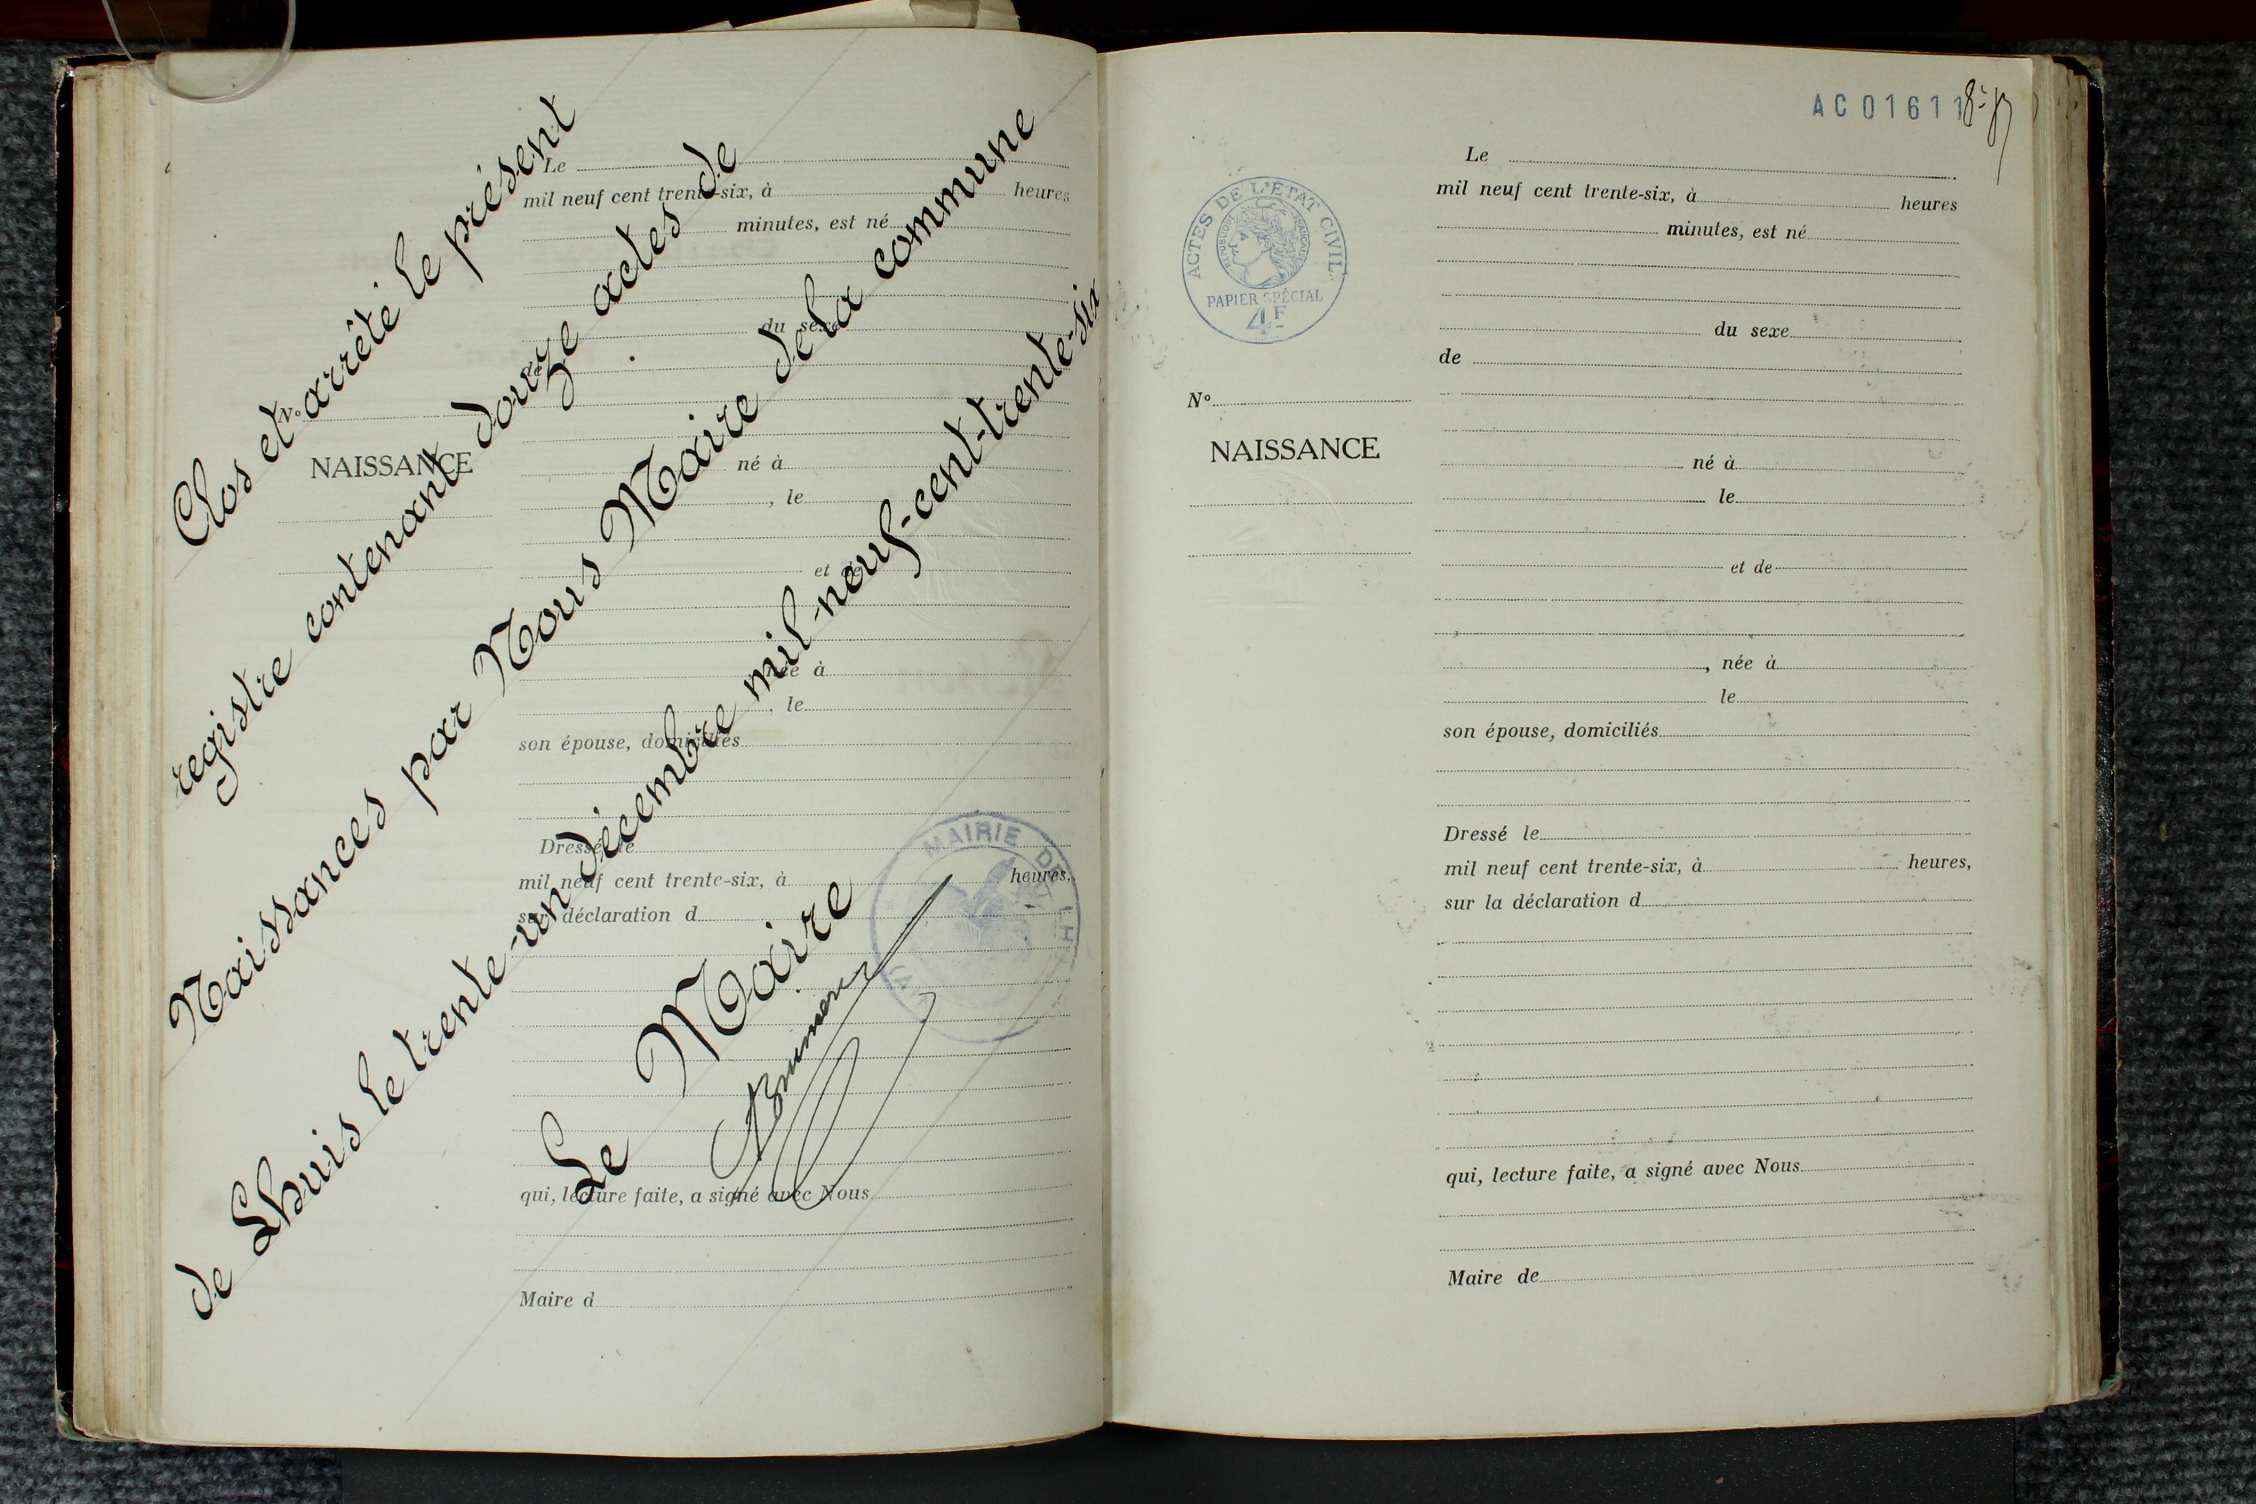 Clos et arrêté le présent
registre contenant douze actes de
Naissances par Nous Maire de la commune
de Lhuis le trente-un décembre mil-neuf-cent-trente-six
Le Maire
Le
mil neuf cent trente-six, à heures
minutes, est né
du sexe
de
N°
NAISSANCE
né à
, le
et de
née à
, le
son épouse, domiciliés
Dressé le
mil neuf cent trente-six, à heures,
sur déclaration d
qui, lecture faite, a signé avec Nous
Maire d
MAIRIE DE LH
AC 01611
ACTES DE L'ETAT CIVIL
REPUBLIQUE FRANÇAISE
PAPIER SPÉCIAL
4F
Le
mil neuf cent trente-six, à heures
minutes, est né
du sexe
de
N°
NAISSANCE
né à
le
et de
, née à
le
son épouse, domiciliés
Dressé le
mil neuf cent trente-six, à heures,
sur la déclaration d
qui, lecture faite, a signé avec Nous
Maire de